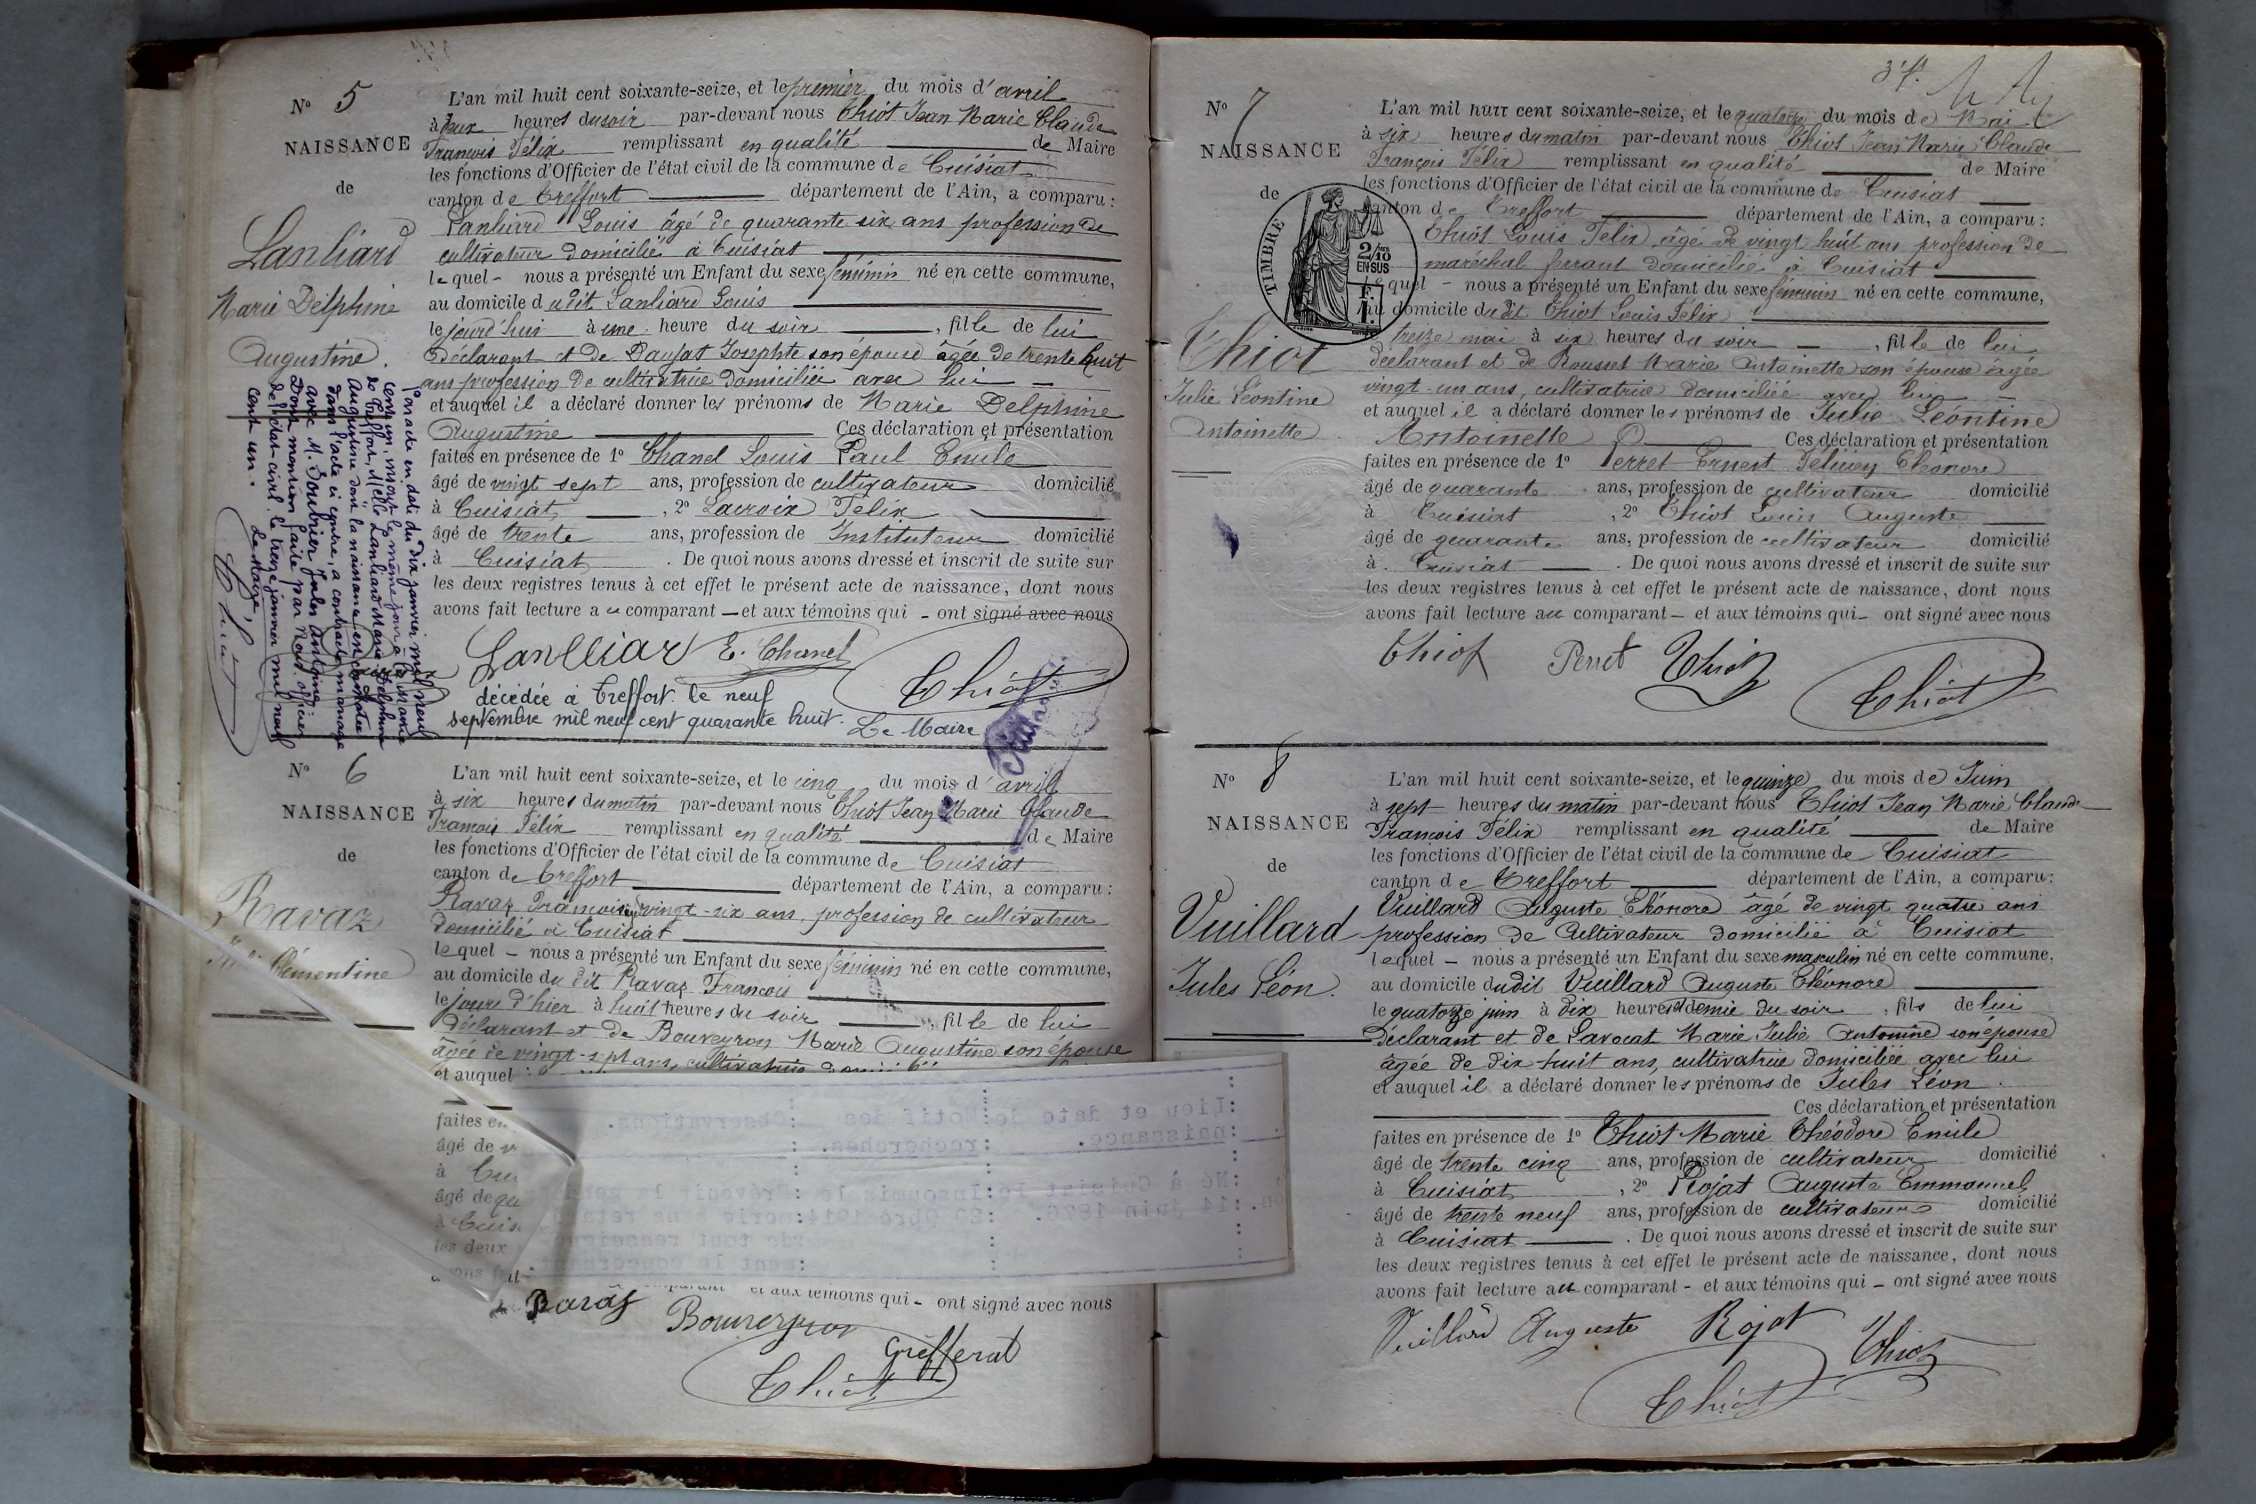 N° 5
NAISSANCE
de
Lanliard
Marie Delphine
Augustine.
L'an mil huit cent soixante-seize, et le premier du mois d'avril
à deux heures du soir par-devant nous Thiot Jean Marie Claude
François Félix remplissant en qualité de Maire
les fonctions d'Officier de l'état civil de la commune de Cuisiat
canton de Treffort département de l'Ain, a comparu:
Lanliard Louis âgé de quarante six ans profession de
cultivateur domicilié à Cuisiat
lequel - nous a présenté un Enfant du sexe féminin né en cette commune,
au domicile dudit Lanliard Louis
le jourd'hui à une heure du soir, fille de lui
Déclarant et de Daujat Josephte son épouse âgée de trente huit
ans profession de cultivatrice domiciliée avec lui -
et auquel il a déclaré donner les prénoms de Marie Delphine
Augustine Ces déclaration et présentation
faites en présence de 1° Chanel Louis Paul Emile
âgé de vingt sept ans, profession de cultivateur domicilié
à Cuisiat, 2° Lacroix Félix
âgé de trente ans, profession de Instituteur domicilié
à Cuisiat. De quoi nous avons dressé et inscrit de suite sur
les deux registres tenus à cet effet le présent acte de naissance, dont nous
avons fait lecture au comparant - et aux témoins qui - ont signé avec nous
Lanlliard E. Chanel
Thiot
décédée à Treffort le neuf
septembre mil neuf cent quarante huit.
Le Maire
Par acte en date du dix janvier mil neuf
cent un, inscrit le même jour à la mairie
de Treffort, Melle Lanliard Marie Delphine
Augustine dont la naissance est constatée
dans l'acte ci contre, a contracté mariage
avec M. Doubrier Jules Antoine
Dont mention faite par Nous officier
de l'état-civil le treize janvier mil neuf
cent un.
Le Maire,
Thiot
N° 6
NAISSANCE
de
Ravaz
Clémentine
L'an mil huit cent soixante-seize, et le cinq du mois d'avril
à six heures du matin par-devant nous Thiot Jean Marie Claude
François Félix remplissant en qualité de Maire
les fonctions d'Officier de l'état civil de la commune de Cuisiat
canton de Treffort département de l'Ain, a comparu:
Ravaz François vingt-six ans, profession de cultivateur
domicilié à Cuisiat
lequel - nous a présenté un Enfant du sexe féminin né en cette commune,
au domicile du dit Ravaz François
le jour d'hier à huit heures du soir, fille de lui
Déclarant et de Bouveyron Marie Augustine son épouse
âgée de vingt-sept ans, cultivatrice
et auquel
faites en
âgé de
à Cui
âgé de qu
à Cuis
les deux
avons fait
Lieu et date de Motif des Observations.
naissance. recherches.
Né à Cuisiat le Insoumis le Prévenir la
14 Juin 1876. 1914
de tout
ment le concernant
comparant et aux témoins qui - ont signé avec nous
Ravaz
Bouveyron
Grefferat
Thiot
3 f.
N° 7
NAISSANCE
de
TIMBRE
2/10
EN SUS
Thiot
Julie Léontine
Antoinette.
L'an mil huit cent soixante-seize, et le quatorze du mois de Mai
à six heures du matin par-devant nous Thiot Jean Marie Claude
François Félix remplissant en qualité de Maire
les fonctions d'Officier de l'état civil de la commune de Cuisiat
canton de Treffort département de l'Ain, a comparu:
Thiot Louis Félix âgé de vingt huit ans profession de
maréchal ferrant domicilié à Cuisiat
lequel - nous a présenté un Enfant du sexe féminin né en cette commune,
au domicile dudit Thiot Louis Félix
treize mai à six heures du soir -, fille de lui
déclarant et de Rousset Marie Antoinette son épouse âgée
vingt-un ans, cultivatrice domiciliée avec lui -
et auquel il a déclaré donner les prénoms de Julie Léontine
Antoinette Ces déclaration et présentation
faites en présence de 1° Perret Ernest Eléonore
âgé de quarante ans, profession de cultivateur domicilié
à Cuisiat, 2° Thiot Louis Auguste
âgé de quarante ans, profession de cultivateur domicilié
à Cuisiat. De quoi nous avons dressé et inscrit de suite sur
les deux registres tenus à cet effet le présent acte de naissance, dont nous
avons fait lecture au comparant - et aux témoins qui - ont signé avec nous
Thiot Perret Thiot
Thiot
N° 8
NAISSANCE
de
Vuillard
Jules Léon.
L'an mil huit cent soixante-seize, et le quinze du mois de Juin
à sept heures du matin par-devant nous Thiot Jean Marie Claude
François Félix remplissant en qualité de Maire
les fonctions d'Officier de l'état civil de la commune de Cuisiat
canton de Treffort département de l'Ain, a comparu:
Vuillard Auguste Eléonore âgé de vingt quatre ans
profession de Cultivateur domicilié à Cuisiat
lequel - nous a présenté un Enfant du sexe masculin né en cette commune,
au domicile dudit Vuillard Auguste Eléonore
le quatorze juin à dix heures et demie du soir, fils de lui
Déclarant et de Lavocat Marie Julie Antonine son épouse
âgée de dix-huit ans, cultivatrice domiciliée avec lui
et auquel il a déclaré donner les prénoms de Jules Léon.
Ces déclaration et présentation
faites en présence de 1° Thiot Marie Théodore Emile
âgé de trente cinq ans, profession de cultivateur domicilié
à Cuisiat, 2° Rojat Auguste Emmanuel
âgé de trente neuf ans, profession de cultivateur domicilié
à Cuisiat. De quoi nous avons dressé et inscrit de suite sur
les deux registres tenus à cet effet le présent acte de naissance, dont nous
avons fait lecture au comparant - et aux témoins qui - ont signé avec nous
Vuillard Auguste Rojat Thiot
Thiot